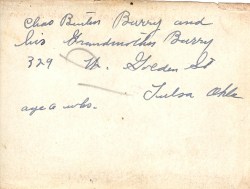 Chas Burton Burry and
his Grandmother Burry
329 W. Golden St
Tulsa Okla
age 6 wks.